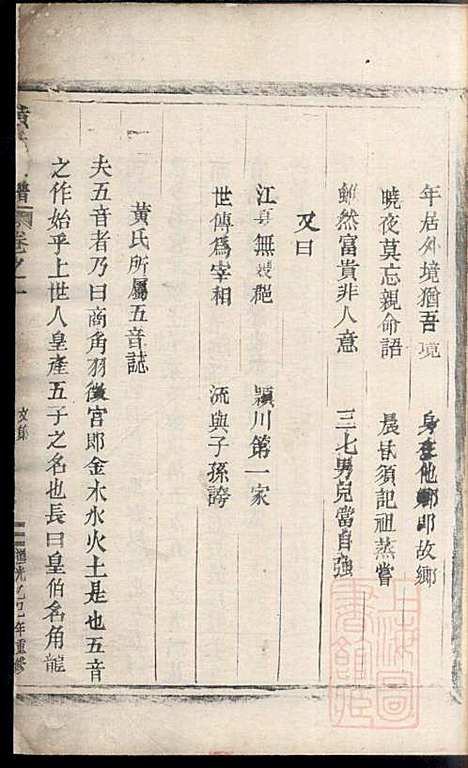 年居外境猶吾境　身在他鄉即故鄉
曉夜莫忘親命語　晨昏須記祖蒸嘗
然富貴非人意　三七男兒當自強
又曰
江夏無雙　潁川第一家
世傳爲宰相　流與子孫誇
黃氏所屬五音誌
夫五音者乃曰商角羽徵宮即金木水火土是也五音
之作始乎上世人皇產五子之名也長曰皇伯名角龍
譜 卷之一 文集 道光乙巳年重修